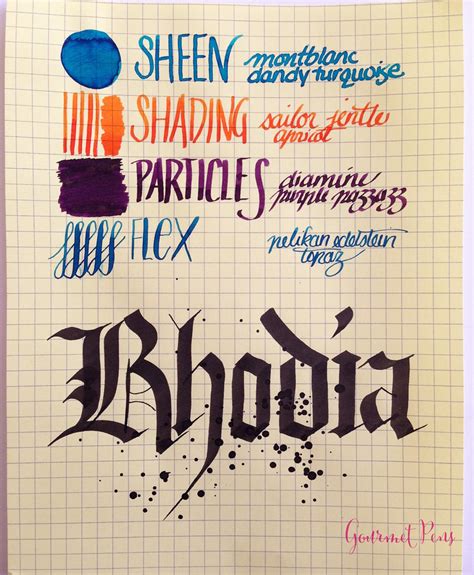 SHEEN montblanc
dandy turquoise
SHADING sailor jentle
apricot
PARTICLES diamine
purple pazzazz
FLEX pelikan edelstein
topaz
Rhodia
Gourmet Pens